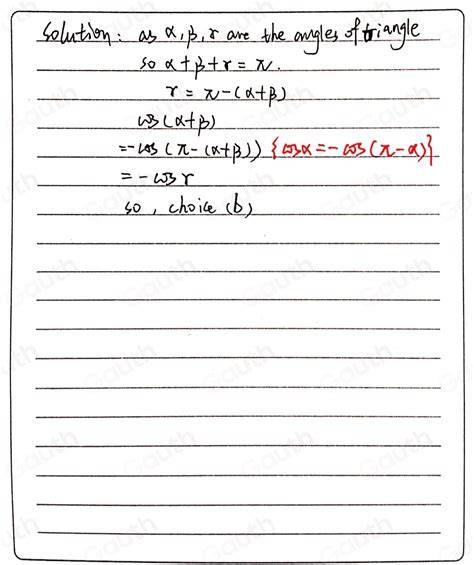 Solution: as α, β, r are the angles of triangle
so α+β+r = π.
r = π-(α+β)
cos(α+β)
=-cos(π-(α+β)) {cosα=-cos(π-α)}
= -cosr
so, choice (b)
Gauth